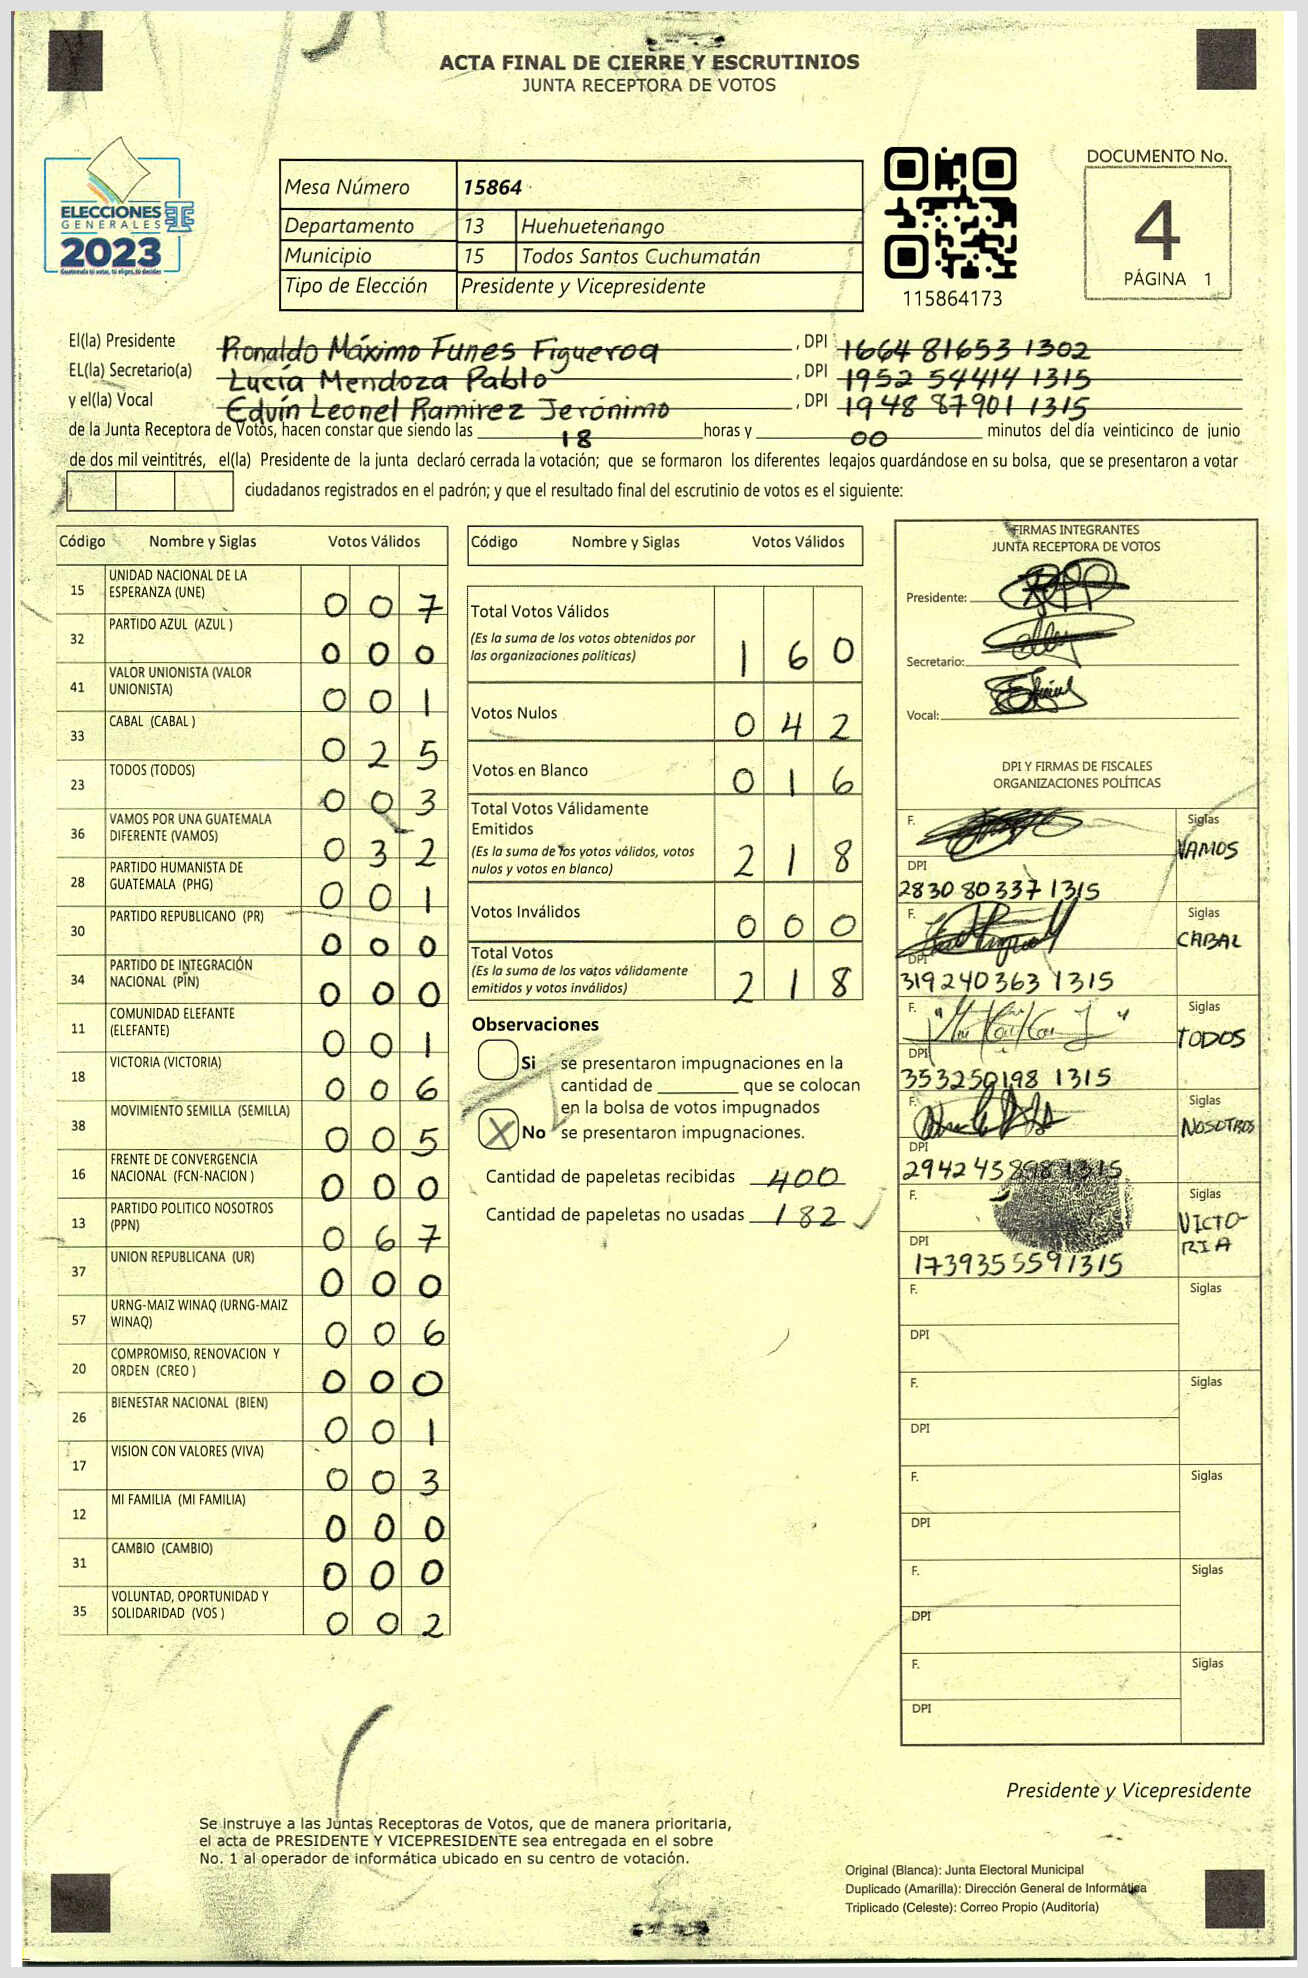 ACTA FINAL DE CIERRE Y ESCRUTINIOS
JUNTA RECEPTORA DE VOTOS
ELECCIONES
GENERALES
2023
Guatemala tú votas, tú eliges, tú decides
Mesa Número 15864
Departamento 13 Huehuetenango
Municipio 15 Todos Santos Cuchumatán
Tipo de Elección Presidente y Vicepresidente
115864173
DOCUMENTO No.
4
PÁGINA 1
El(la) Presidente Ronaldo Máximo Funes Figueroa , DPI 1664 81653 1302
EL(la) Secretario(a) Lucía Mendoza Pablo , DPI 1952 54414 1315
y el(la) Vocal Edvin Leonel Ramirez Jerónimo , DPI 1948 87901 1315
de la Junta Receptora de Votos, hacen constar que siendo las 18 horas y 00 minutos del día veinticinco de junio
de dos mil veintitrés, el(la) Presidente de la junta declaró cerrada la votación; que se formaron los diferentes legajos guardándose en su bolsa, que se presentaron a votar
ciudadanos registrados en el padrón; y que el resultado final del escrutinio de votos es el siguiente:
Código Nombre y Siglas Votos Válidos
15 UNIDAD NACIONAL DE LA ESPERANZA (UNE) 0 0 7
32 PARTIDO AZUL (AZUL ) 0 0 0
41 VALOR UNIONISTA (VALOR UNIONISTA) 0 0 1
33 CABAL (CABAL ) 0 2 5
23 TODOS (TODOS) 0 0 3
36 VAMOS POR UNA GUATEMALA DIFERENTE (VAMOS) 0 3 2
28 PARTIDO HUMANISTA DE GUATEMALA (PHG) 0 0 1
30 PARTIDO REPUBLICANO (PR) 0 0 0
34 PARTIDO DE INTEGRACIÓN NACIONAL (PIN) 0 0 0
11 COMUNIDAD ELEFANTE (ELEFANTE) 0 0 1
18 VICTORIA (VICTORIA) 0 0 6
38 MOVIMIENTO SEMILLA (SEMILLA) 0 0 5
16 FRENTE DE CONVERGENCIA NACIONAL (FCN-NACION ) 0 0 0
13 PARTIDO POLITICO NOSOTROS (PPN) 0 6 7
37 UNION REPUBLICANA (UR) 0 0 0
57 URNG-MAIZ WINAQ (URNG-MAIZ WINAQ) 0 0 6
20 COMPROMISO, RENOVACION Y ORDEN (CREO ) 0 0 0
26 BIENESTAR NACIONAL (BIEN) 0 0 1
17 VISION CON VALORES (VIVA) 0 0 3
12 MI FAMILIA (MI FAMILIA) 0 0 0
31 CAMBIO (CAMBIO) 0 0 0
35 VOLUNTAD, OPORTUNIDAD Y SOLIDARIDAD (VOS ) 0 0 2
Código Nombre y Siglas Votos Válidos
Total Votos Válidos 1 6 0
(Es la suma de los votos obtenidos por
las organizaciones políticas)
Votos Nulos 0 4 2
Votos en Blanco 0 1 6
Total Votos Válidamente
Emitidos 2 1 8
(Es la suma de los votos válidos, votos
nulos y votos en blanco)
Votos Inválidos 0 0 0
Total Votos 2 1 8
(Es la suma de los votos válidamente
emitidos y votos inválidos)
Observaciones
Si se presentaron impugnaciones en la
cantidad de ________ que se colocan
en la bolsa de votos impugnados
X No se presentaron impugnaciones.
Cantidad de papeletas recibidas 400
Cantidad de papeletas no usadas 182
FIRMAS INTEGRANTES
JUNTA RECEPTORA DE VOTOS
Presidente:
Secretario:
Vocal:
DPI Y FIRMAS DE FISCALES
ORGANIZACIONES POLÍTICAS
F. Siglas VAMOS
DPI 2830 80337 1315
F. Siglas CABAL
DPI 319240363 1315
F. Siglas TODOS
DPI 353250198 1315
F. Siglas NOSOTROS
DPI 1315
F. Siglas VICTO-
RIA
DPI 1739355591315
F. Siglas
DPI
F. Siglas
DPI
F. Siglas
DPI
F. Siglas
DPI
F. Siglas
DPI
Presidente y Vicepresidente
Se instruye a las Juntas Receptoras de Votos, que de manera prioritaria,
el acta de PRESIDENTE Y VICEPRESIDENTE sea entregada en el sobre
No. 1 al operador de informática ubicado en su centro de votación.
Original (Blanca): Junta Electoral Municipal
Duplicado (Amarilla): Dirección General de Informática
Triplicado (Celeste): Correo Propio (Auditoría)